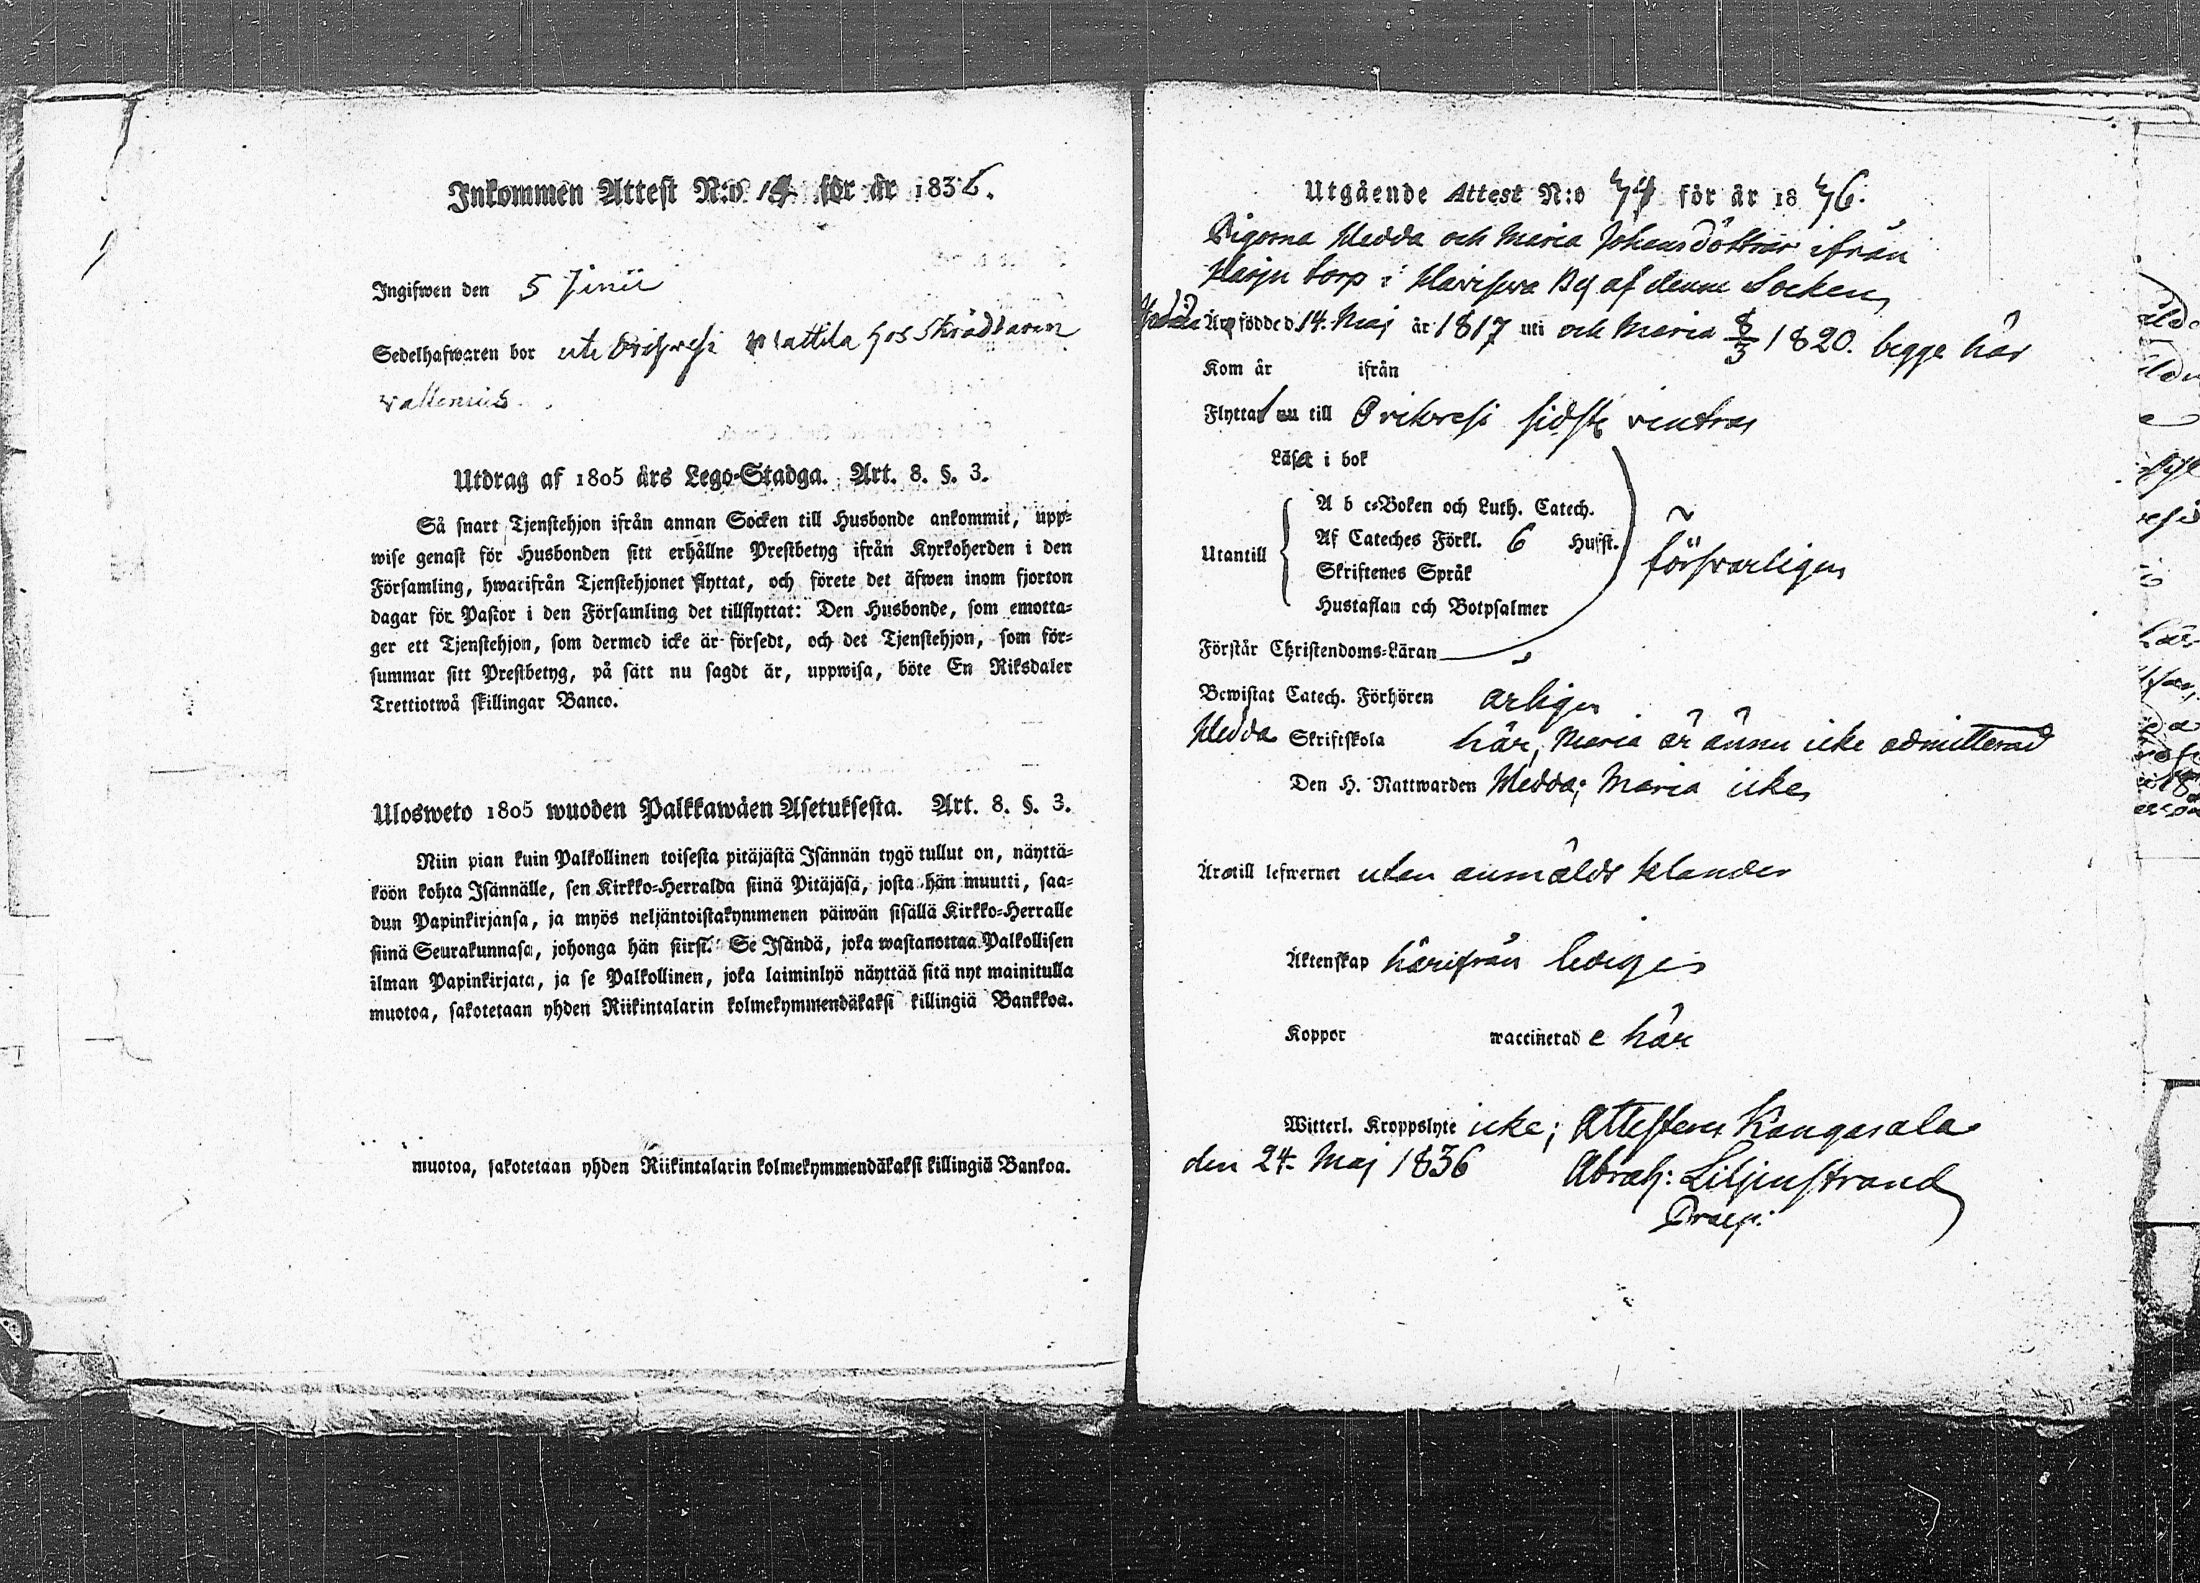 Inkommen Attest N:o 14 för år 1836.
Ingifwen den 5 Junii
Sedelhafwaren bor uti Orihvesi Mattila hos Skräddaren
Wallenius.
Utdrag af 1805 års Lego-Stadga. Art. 8. §. 3.
Så snart Tjenstehjon ifrån annan Socken till Husbonde ankommit, upp-
wise genast för Husbonden sitt erhållne Prestbetyg ifrån Kyrkoherden i den
Församling, hwarifrån Tjenstehjonet flyttat, och förete det äfwen inom fjorton
dagar för Pastor i den Församling det tillflyttat: Den Husbonde, som emotta-
ger ett Tjenstehjon, som dermed icke är försedt, och det Tjenstehjon, som för-
summar sitt Prestbetyg, på sätt nu sagdt är, uppwisa, böte En Riksdaler
Trettiotwå skillingar Banco.
Ulosweto 1805 wuoden Palkkawäen Asetuksesta. Art. 8. §. 3.
Niin pian kuin Palkollinen toisesta pitäjästä Isännän tygö tullut on, näyttä-
köön kohta Isännälle, sen Kirkko-Herralda siinä Pitäjäsä, josta hän muutti, saa-
dun Papinkirjansa, ja myös neljäntoistakymmenen päiwän sisällä Kirkko-Herralle
siinä Seurakunnasa, johonga hän siirsi. Se Isändä, joka wastanottaa Palkollisen
ilman Papinkirjata, ja se Palkollinen, joka laiminlyö näyttää sitä nyt mainitulla
muotoa, sakotetaan yhden Riikintalarin kolmekymmendäkaksi killingiä Bankkoa.
muotoa, sakotetaan yhden Riikintalarin kolmekymmendäkaksi killingiä Bankoa.
Utgående Attest N:o 74 för år 18 36.
Pigorna Hedda och Maria Johansdöttrar ifrån
Harju torp i Haviseva By af denne Socken
Hedda Är född d 14. Maj år 1817 uti och Maria 8/3 1820. begge här
Kom år ifrån
Flyttat nu till Orihvesi sidste ventras
Läsa i bok
Utantill
A b c-Boken och Luth. Catech.
Af Cateches Förkl. 6 Hufst.
Skriftenes Språk
Hustaflan och Botpsalmer
försvarligen
Förstår Christendoms-Läran
Bewistat Catech. Förhören årligen
Hedda Skriftskola här, Maria är ännu icke admitterad
Den H. Nattwarden Hedda; Maria icke
Äro till lefwernet utan anmäldt klander
Äktenskap härifrån lediga
Koppor waccinerade här
Witterl. Kroppslyte icke; Attesterar Kangasala
den 24. Maj 1836 Abrah: Liljenstrand